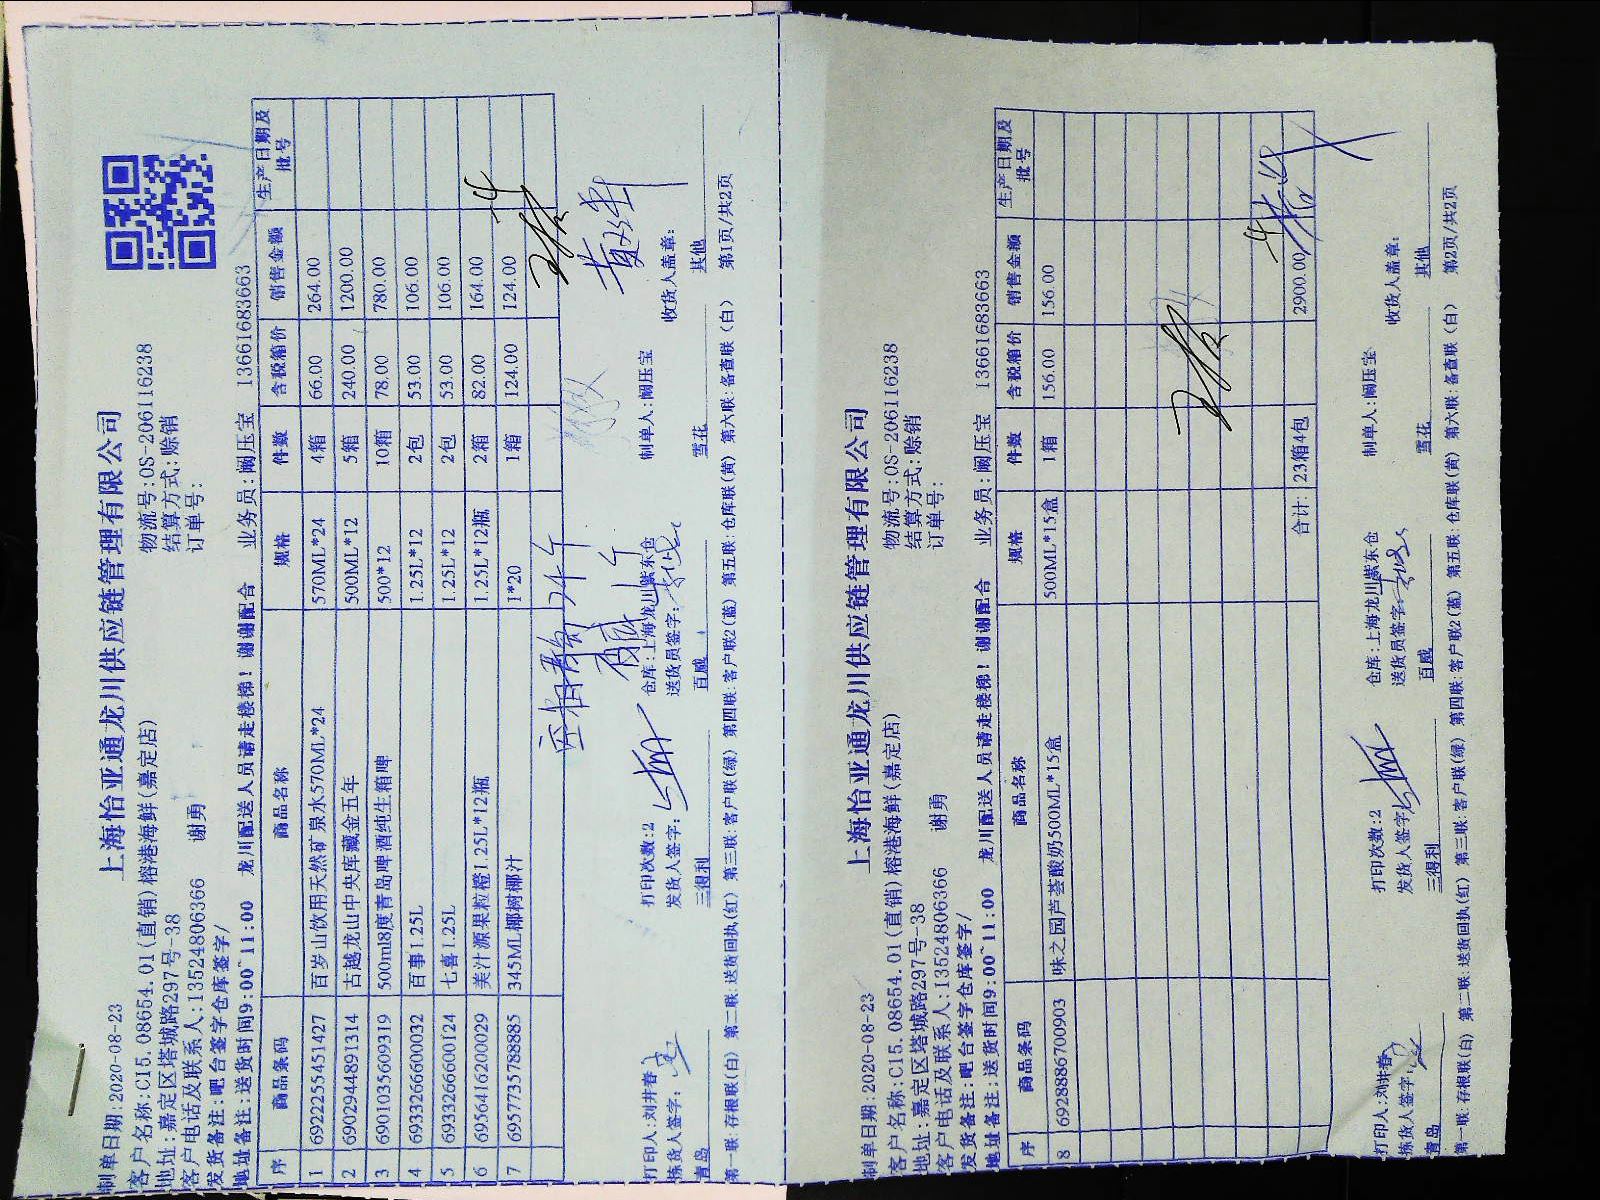 上海怡亚通龙川供应链管理有限公司
制单日期:2020-08-23 物流号:OS-206116238
客户名称:C15.08654.01(直销)榕港海鲜(嘉定店) 结算方式:赊销
地址:嘉定区塔城路297号-38 订单号:
客户电话及联系人:13524806366 谢勇
发货备注:吧台签字仓库签字/
地址备注:送货时间9:00~11:00 龙川配送人员请走楼梯!谢谢配合 业务员:阚压宝 13661683663
序 商品条码 商品名称 规格 件数 含税箱价 销售金额 生产日期及批号
1 6922255451427 百岁山饮用天然矿泉水570ML*24 570ML*24 4箱 66.00 264.00
2 6902944891314 古越龙山中央库藏金五年 500ML*12 5箱 240.00 1200.00
3 6901035609319 500ml8度青岛啤酒纯生箱啤 500*12 10箱 78.00 780.00
4 6933266600032 百事1.25L 1.25L*12 2包 53.00 106.00
5 6933266600124 七喜1.25L 1.25L*12 2包 53.00 106.00
6 6956416200029 美汁源果粒橙1.25L*12瓶 1.25L*12瓶 2箱 82.00 164.00
7 6957735788885 345ML椰树椰汁 1*20 1箱 124.00 124.00
打印人:刘井春 打印次数:2 仓库:上海龙川紫东仓 制单人:阚压宝 收货人盖章:
拣货人签字: 发货人签字: 送货员签字:
青岛 三得利 百威 雪花 其他
第一联:存根联(白) 第二联:送货回执(红) 第三联:客户联(绿) 第四联:客户联2(蓝) 第五联:仓库联(黄) 第六联:备查联(白) 第1页/共2页
上海怡亚通龙川供应链管理有限公司
制单日期:2020-08-23 物流号:OS-206116238
客户名称:C15.08654.01(直销)榕港海鲜(嘉定店) 结算方式:赊销
地址:嘉定区塔城路297号-38 订单号:
客户电话及联系人:13524806366 谢勇
发货备注:吧台签字仓库签字/
地址备注:送货时间9:00~11:00 龙川配送人员请走楼梯!谢谢配合 业务员:阚压宝 13661683663
序 商品条码 商品名称 规格 件数 含税箱价 销售金额 生产日期及批号
8 6928886700903 味之园芦荟酸奶500ML*15盒 500ML*15盒 1箱 156.00 156.00
合计: 23箱4包 2900.00
打印人:刘井春 打印次数:2 仓库:上海龙川紫东仓 制单人:阚压宝 收货人盖章:
拣货人签字: 发货人签字: 送货员签字:
青岛 三得利 百威 雪花 其他
第一联:存根联(白) 第二联:送货回执(红) 第三联:客户联(绿) 第四联:客户联2(蓝) 第五联:仓库联(黄) 第六联:备查联(白) 第2页/共2页